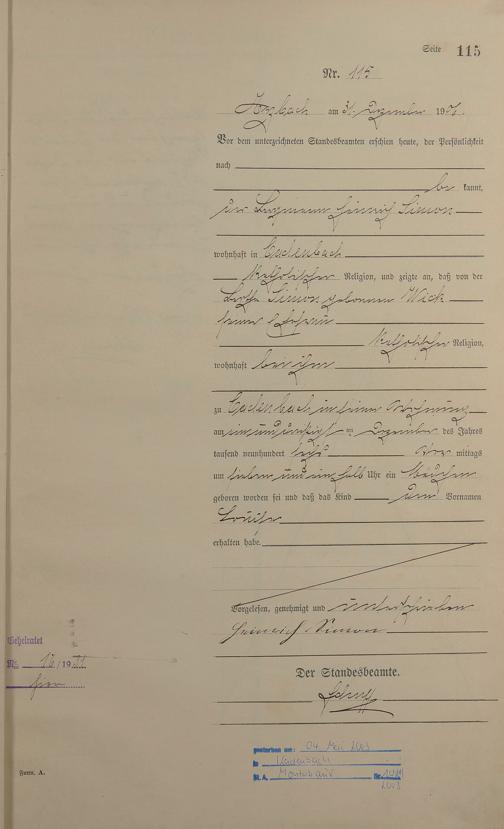 Seite 115
Nr. 115
am 31. Dezember 190
Vor dem unterzeichneten Standesbeamten erschien heute, der Persönlichkeit
nach
be kannt,
der Bergmann Heinrich Simon
wohnhaft in
katholischer Religion, und zeigte an, daß von der
Simon geborenen Wick
seiner Ehefrau
katholischer Religion,
wohnhaft bei ihm
zu in seiner Wohnung
am ein und ten Dezember des Jahres
tausend neunhundert sechs Vor mittags
um sieben und ein halb Uhr ein Mädchen
geboren worden sei und daß das Kind den Vornamen
Louise
erhalten habe.
Vorgelesen, genehmigt und unterschrieben
Heinrich Simon
Der Standesbeamte.
Geheiratet
Nr. /19
hier
gestorben am: 04. Mai 2003
in
St. A. Montabaur Nr.
2003
Form. A.